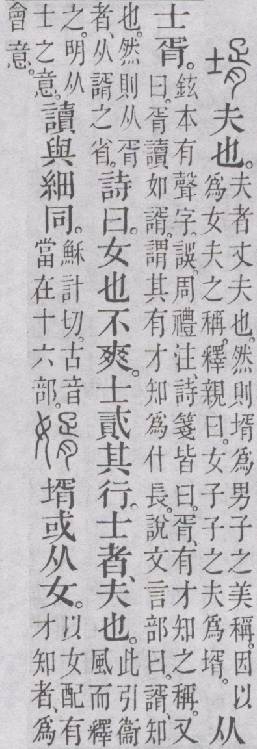 壻夫也。夫者丈夫也。然則壻爲男子之美稱。因以爲女夫之稱。釋親曰。女子子之夫爲壻。从
士胥。鉉本有聲字。誤。周禮注詩箋皆曰。胥、有才知之稱。又曰。胥讀如諝。謂其有才知爲什長。說文言部曰。諝、知
也。然則从胥者、从諝之省。詩曰。女也不爽。士貳其行。士者、夫也。此引衞風而釋
之。明从士之意。讀與細同。穌計切。古音當在十六部。婿壻或从女。以女配有才知者、爲
會意。